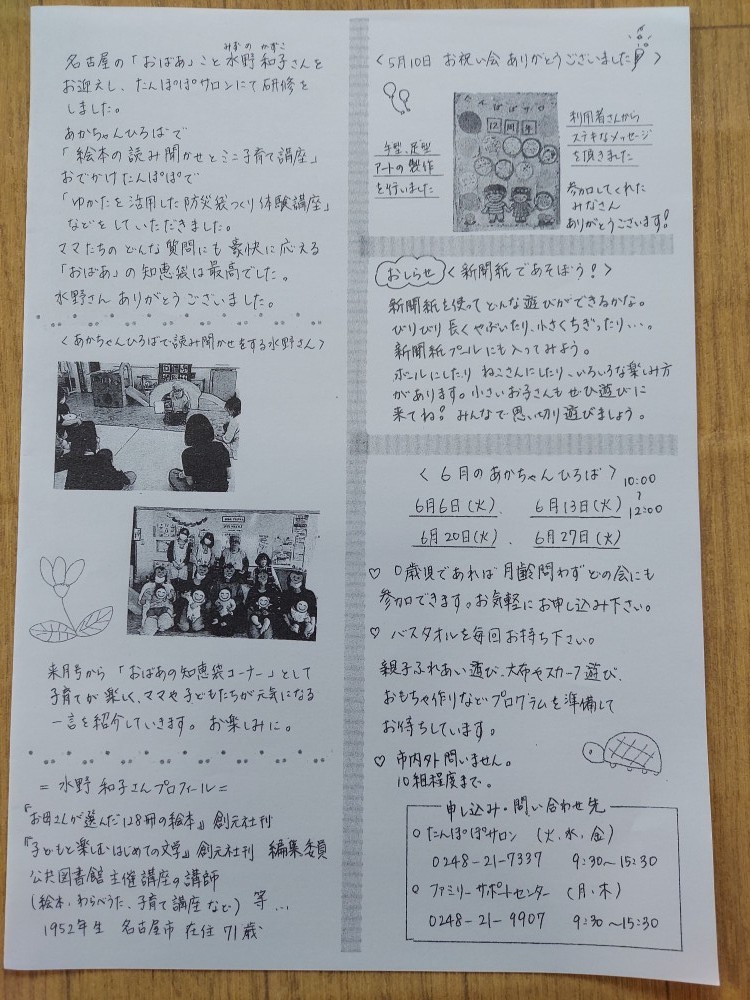 名古屋の「おばぁ」こと水野和子さんを
みずの かずこ
お迎えし、たんぽぽサロンにて研修を
しました。
あかちゃんひろばで
「絵本の読み聞かせとミニ子育て講座」
おでかけたんぽぽで
「ゆかたを活用した防災袋つくり体験講座」
などをしていただきました。
ママたちのどんな質問にも豪快に応える
「おばぁ」の知恵袋は最高でした。
水野さん ありがとうございました。
〈あかちゃんひろばで読み聞かせをする水野さん〉
来月号から「おばあの知恵袋コーナー」として
子育てが楽しく、ママや子どもたちが元気になる
一言を紹介していきます。お楽しみに。
= 水野 和子さんプロフィール =
『お母さんが選んだ128冊の絵本』創元社刊
『子どもと楽しむはじめての文学』創元社刊 編集委員
公共図書館主催講座の講師
(絵本、わらべうた、子育て講座など) 等…
1952年生 名古屋市在住 71歳
〈5月10日 お祝い会 ありがとうございました〉
手型、足型
アートの製作
を行いました
たんぽぽサロン
12周年
利用者さんから
ステキなメッセージ
を頂きました
参加してくれた
みなさん
ありがとうございます!
おしらせ〈新聞紙であそぼう!〉
新聞紙を使ってどんな遊びができるかな。
びりびり長くやぶいたり、小さくちぎったり…。
新聞紙プールにも入ってみよう。
ボールにしたり ねこさんにしたり、いろいろな楽しみ方
があります。小さいお子さんもぜひ遊びに
来てね! みんなで思い切り遊びましょう。
〈6月のあかちゃんひろば〉10:00〜12:00
6月6日(火)、 6月13日(火)
6月20日(火)、 6月27日(火)
♡ 0歳児であれば月齢問わずどの会にも
参加できます。お気軽にお申し込み下さい。
♡ バスタオルを毎回お持ち下さい。
親子ふれあい遊び、大布やスカーフ遊び、
おもちゃ作りなどプログラムを準備して
お待ちしています。
♡ 市内外問いません。
10組程度まで。
申し込み・問い合わせ先
○ たんぽぽサロン (火、水、金)
0248-21-7337 9:30〜15:30
○ ファミリーサポートセンター (月、木)
0248-21-9907 9:30〜15:30